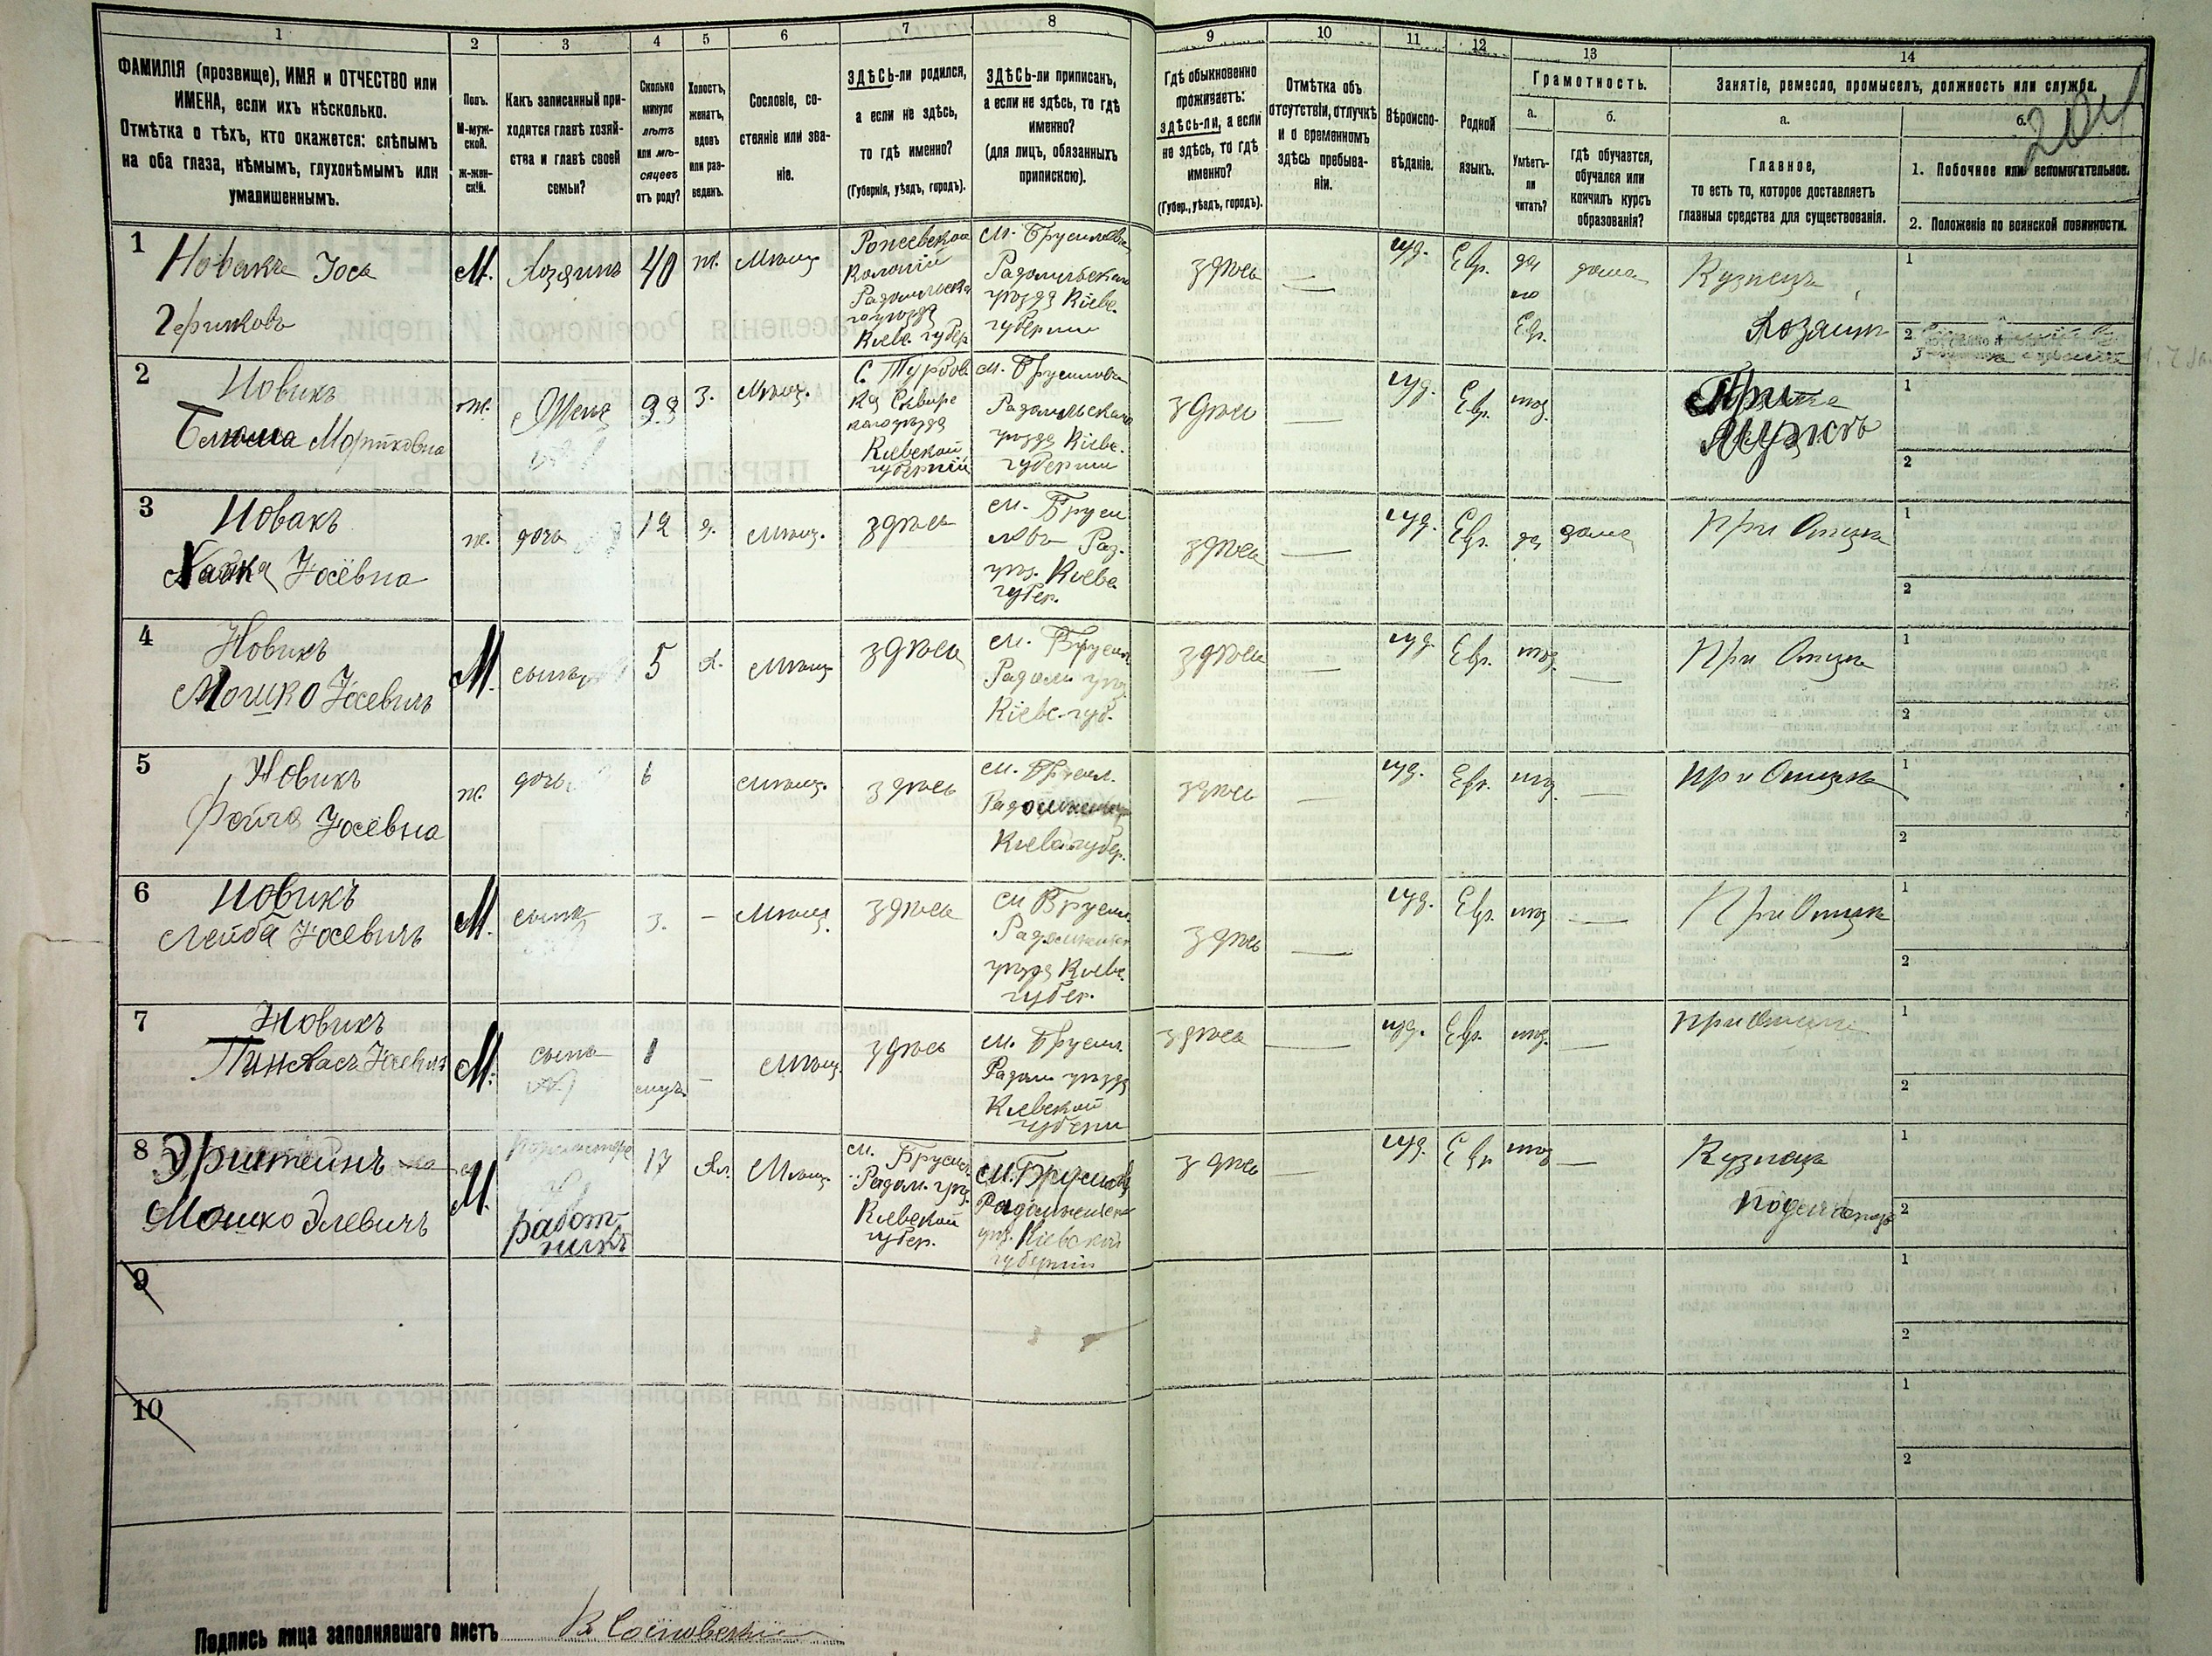 1 2 3 4 5 6 7 8 9 10 11 12 13 14
ФАМИЛІЯ (прозвище), ИМЯ и ОТЧЕСТВО или
ИМЕНА, если ихъ нѣсколько.
Отмѣтка о тѣхъ, кто окажется: слѣпымъ
на оба глаза, нѣмымъ, глухонѣмымъ или
умалишеннымъ.
Полъ.
М-муж-
ской.
Ж-жен-
скій.
Какъ записанный при-
ходится главѣ хозяй-
ства и главѣ своей
семьи?
Сколько
минуло
лѣтъ
или мѣ-
сяцевъ
отъ роду?
Холостъ,
женатъ,
вдовъ
или раз-
веденъ.
Сословіе, со-
стояніе или зва-
ніе.
ЗДѢСЬ-ли родился,
а если не здѣсь,
то гдѣ именно?
(Губернія, уѣздъ, городъ).
ЗДѢСЬ-ли приписанъ,
а если не здѣсь, то гдѣ
именно?
(для лицъ, обязанныхъ
припискою).
Гдѣ обыкновенно
проживаетъ:
здѣсь-ли, а если
не здѣсь, то гдѣ
именно?
(Губер., уѣздъ, городъ).
Отмѣтка объ
отсутствіи, отлучкѣ
и о временномъ
здѣсь пребыва-
ніи.
Вѣроиспо-
вѣданіе.
Родной
языкъ.
Грамотность.
а.
Умѣетъ-
ли
читать?
б.
гдѣ обучается,
обучался или
кончилъ курсъ
образованія?
Занятіе, ремесло, промыселъ, должность или служба.
а.
Главное,
то есть то, которое доставляетъ
главныя средства для существованія.
б.
204
1. Побочное или вспомогательное.
2. Положеніе по воинской повинности.
1
Новикъ Іось
М. Хозяинъ 40 ж. Мѣщ
Колоніи
Кіев. губер
м. Брусилова
Радомысьскаго
уѣзда Кіев.
губерніи
здѣсь — іуд. Евр. да
по
Евр.
дома
Кузнецъ
Хозяинъ
1
2
2
Новикъ
Мортковна
ж. Жена 38 з. Мѣщ.
С. Турбов
Кіевской
губерніи
м. Брусилова
Радомысьскаго
уѣзда Кіев.
губерніи
здѣсь — іуд. Евр. нѣт.
При
Мужѣ
1
2
3
Новакъ
Хайка Іосевна
ж. дочь 12 д. Мѣщ. здѣсь
м. Бруси
лова Рад.
уѣз. Кіев.
губер.
здѣсь — іуд. Евр. да дома При Отцѣ
1
2
4
Новикъ
Мошко Іосевичъ
М. сынъ 5 х. Мѣщ. здѣсь
м. Брусил.
Радом уѣз.
Кіев. губ.
здѣсь — іуд. Евр. нѣт. — При Отцѣ
1
2
5
Новикъ
Фейга Іосевна
ж. дочь 6 Мѣщ. здѣсь
м. Брусил.
Кіев. губер.
здѣсь — іуд. Евр. нѣт. — При Отцѣ
1
2
6
Новикъ
Лейба Іосевичъ
М. сынъ 3. — Мѣщ. здѣсь
м Брусил.
уѣзда Кіев.
губер.
здѣсь — іуд. Евр. нѣт — При Отцѣ
1
2
7
Новикъ
Пинхасъ Іосевич
М. сынъ 1 — Мѣщ. здѣсь
м. Брусил.
Радом уѣзда
Кіевской
губерни
здѣсь іуд. Евр. нѣт. — При Отцѣ
1
2
8
Эрштейнъ
Мошко Элевичъ
М.
работ-
никъ
17 Хл. Мѣщ.
м. Брусил.
Радом. уѣз.
Кіевской
губер.
м. Брусилов
уѣз. Кіевской
губерніи
здѣсь — іуд. Евр нѣт —
Кузнецъ
1
2
9
1
2
10
1
2
Подпись лица заполнявшаго листъ